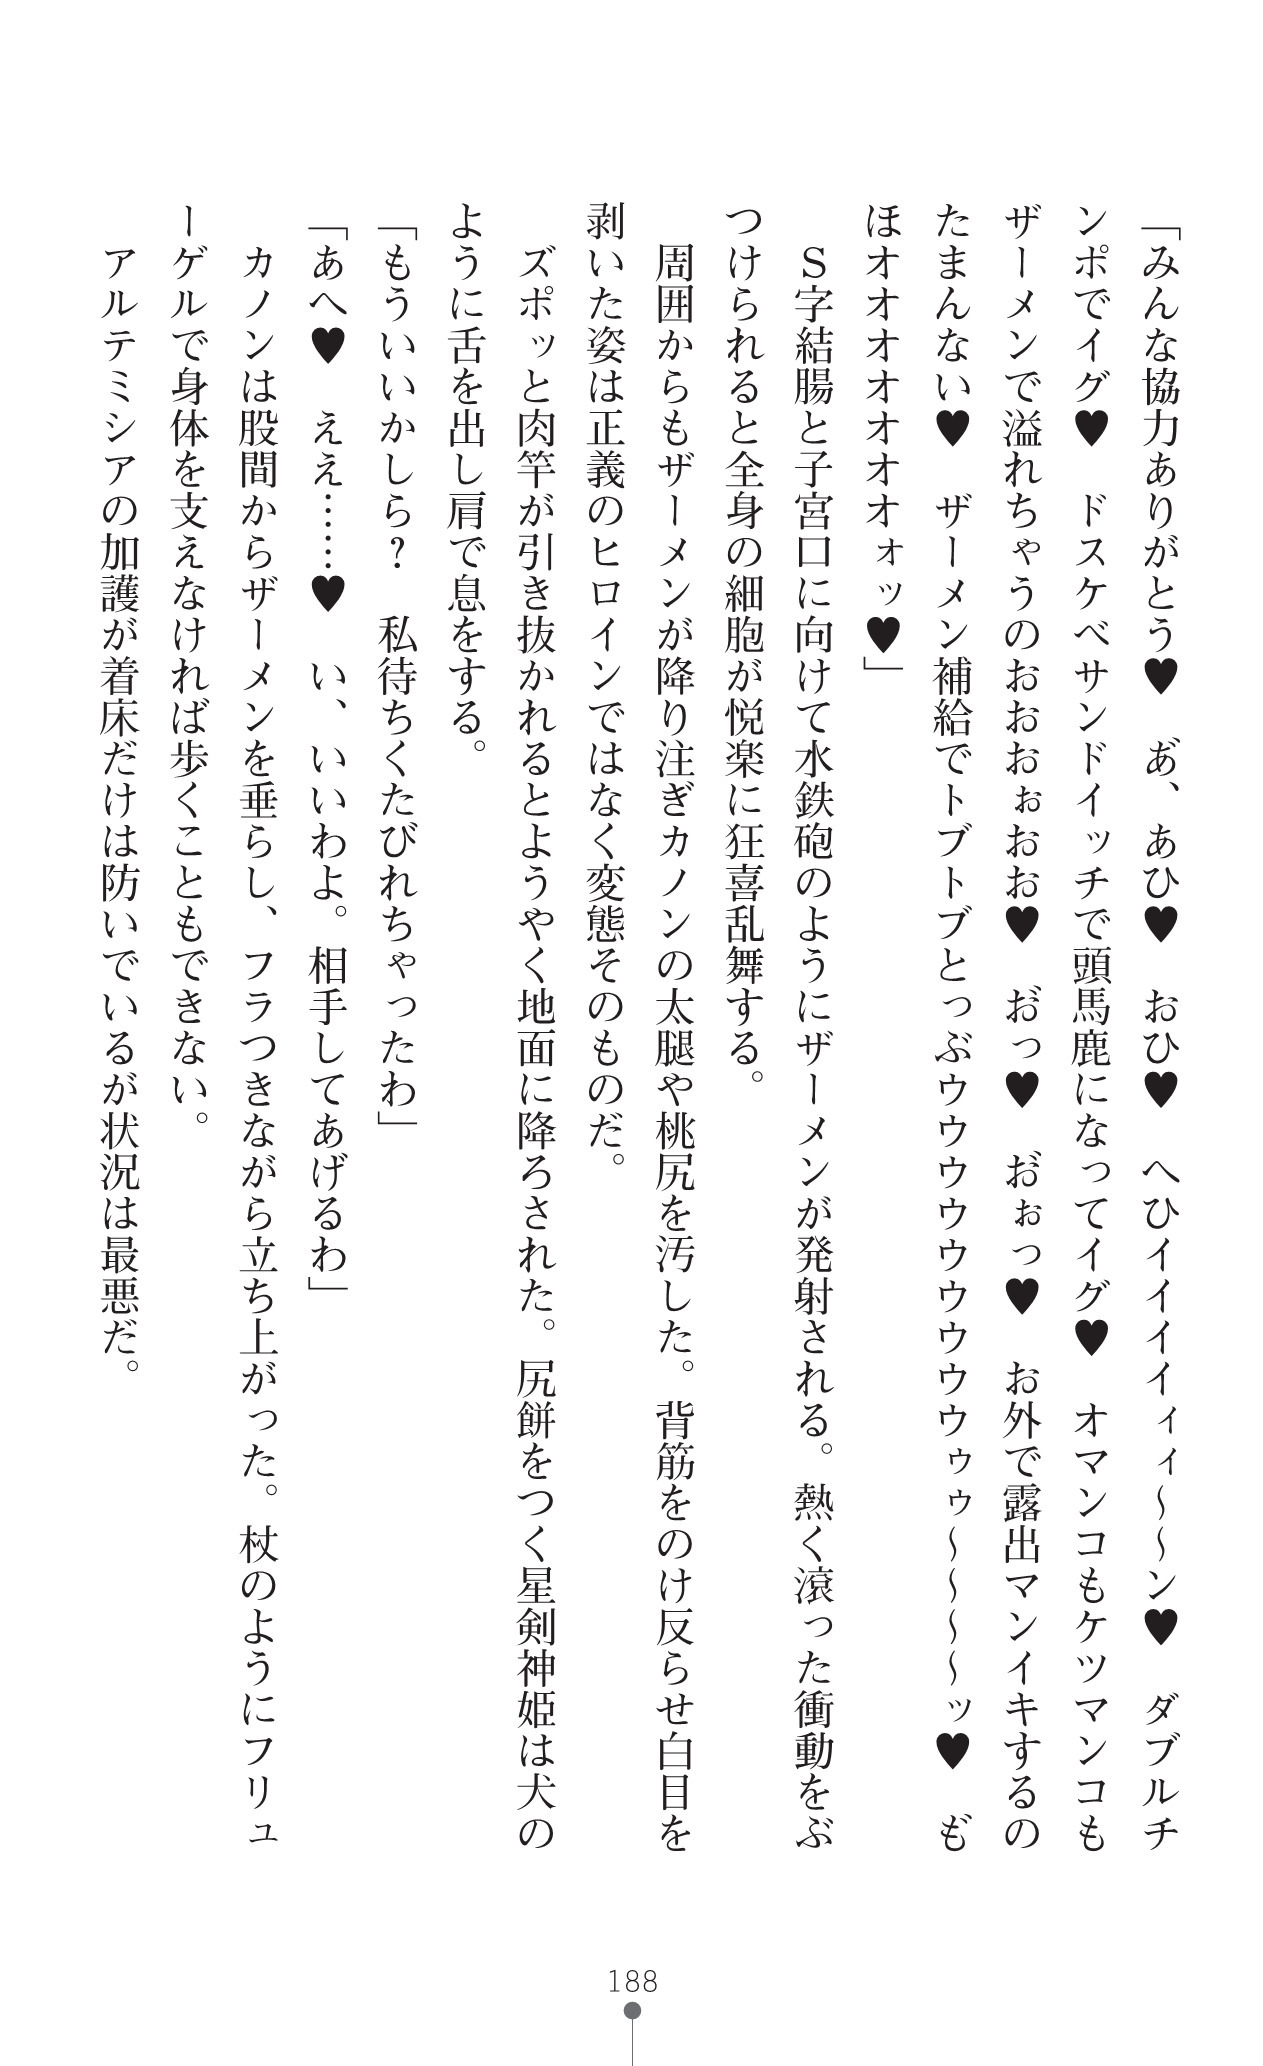 「みんな協力ありがとう♥　あ゛、あひ♥　おひ♥　へひイイイイィィ～～ン♥　ダブルチ
ンポでイグ♥　ドスケベサンドイッチで頭馬鹿になってイグ♥　オマンコもケツマンコも
ザーメンで溢れちゃうのおおおぉおお♥　お゛っ♥　お゛ぉっ♥　お外で露出マンイキするの
たまんない♥　ザーメン補給でトブトブとっぶウウウウウウウウウゥゥ～～～～ッ♥　も゛
ほオオオオオオオォッ♥」
　Ｓ字結腸と子宮口に向けて水鉄砲のようにザーメンが発射される。熱く滾った衝動をぶ
つけられると全身の細胞が悦楽に狂喜乱舞する。
　周囲からもザーメンが降り注ぎカノンの太腿や桃尻を汚した。背筋をのけ反らせ白目を
剥いた姿は正義のヒロインではなく変態そのものだ。
　ズポッと肉竿が引き抜かれるとようやく地面に降ろされた。尻餅をつく星剣神姫は犬の
ように舌を出し肩で息をする。
「もういいかしら？　私待ちくたびれちゃったわ」
「あへ♥　ええ……♥　い、いいわよ。相手してあげるわ」
　カノンは股間からザーメンを垂らし、フラつきながら立ち上がった。杖のようにフリュ
ーゲルで身体を支えなければ歩くこともできない。
　アルテミシアの加護が着床だけは防いでいるが状況は最悪だ。
188